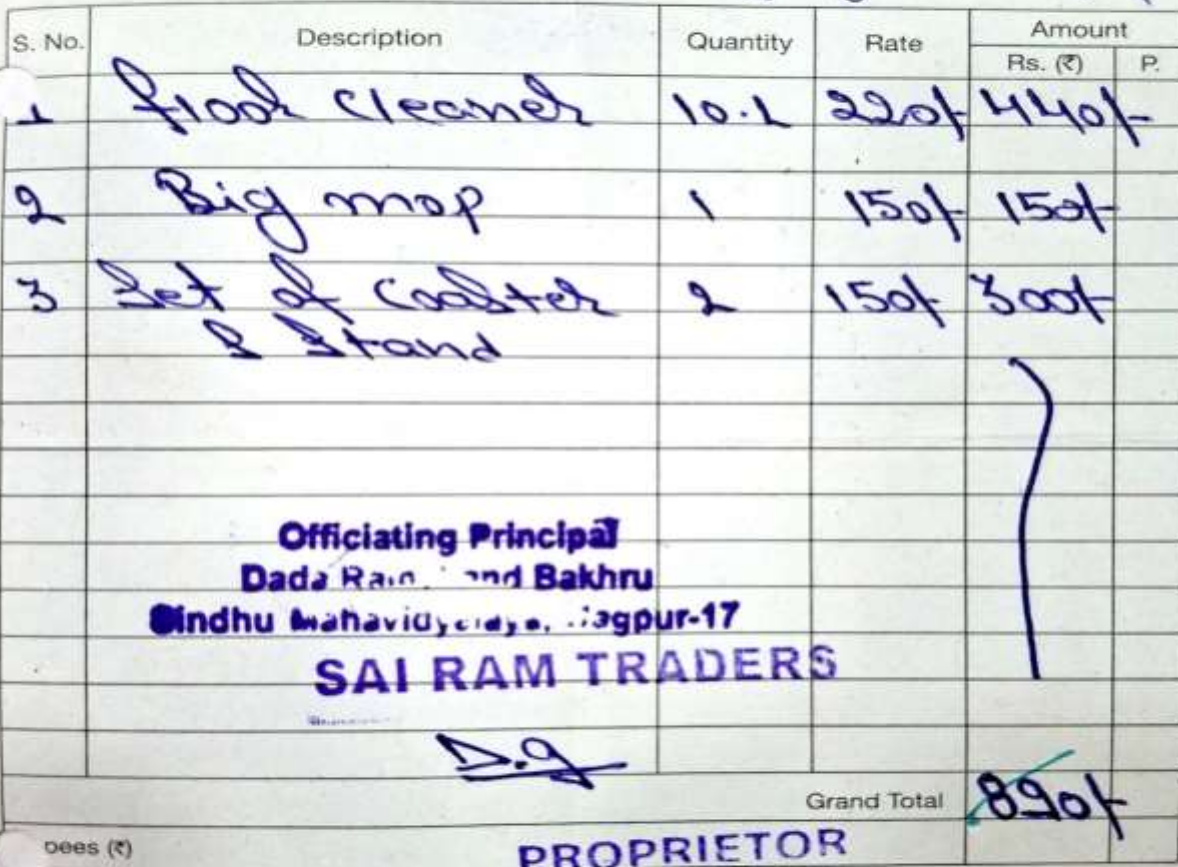 S. No. Description Quantity Rate Amount
Rs. (₹) P.
1 floor cleaner 10.L 220/- 440/-
2 Big mop 1 150/- 150/-
3 Set of Coaster 2 150/- 300/-
& Stand
Officiating Principal
Dada Bakhru
Sindhu Mahavidyalaya, Nagpur-17
SAI RAM TRADERS
D.G
Grand Total 890/-
pees (₹)
PROPRIETOR